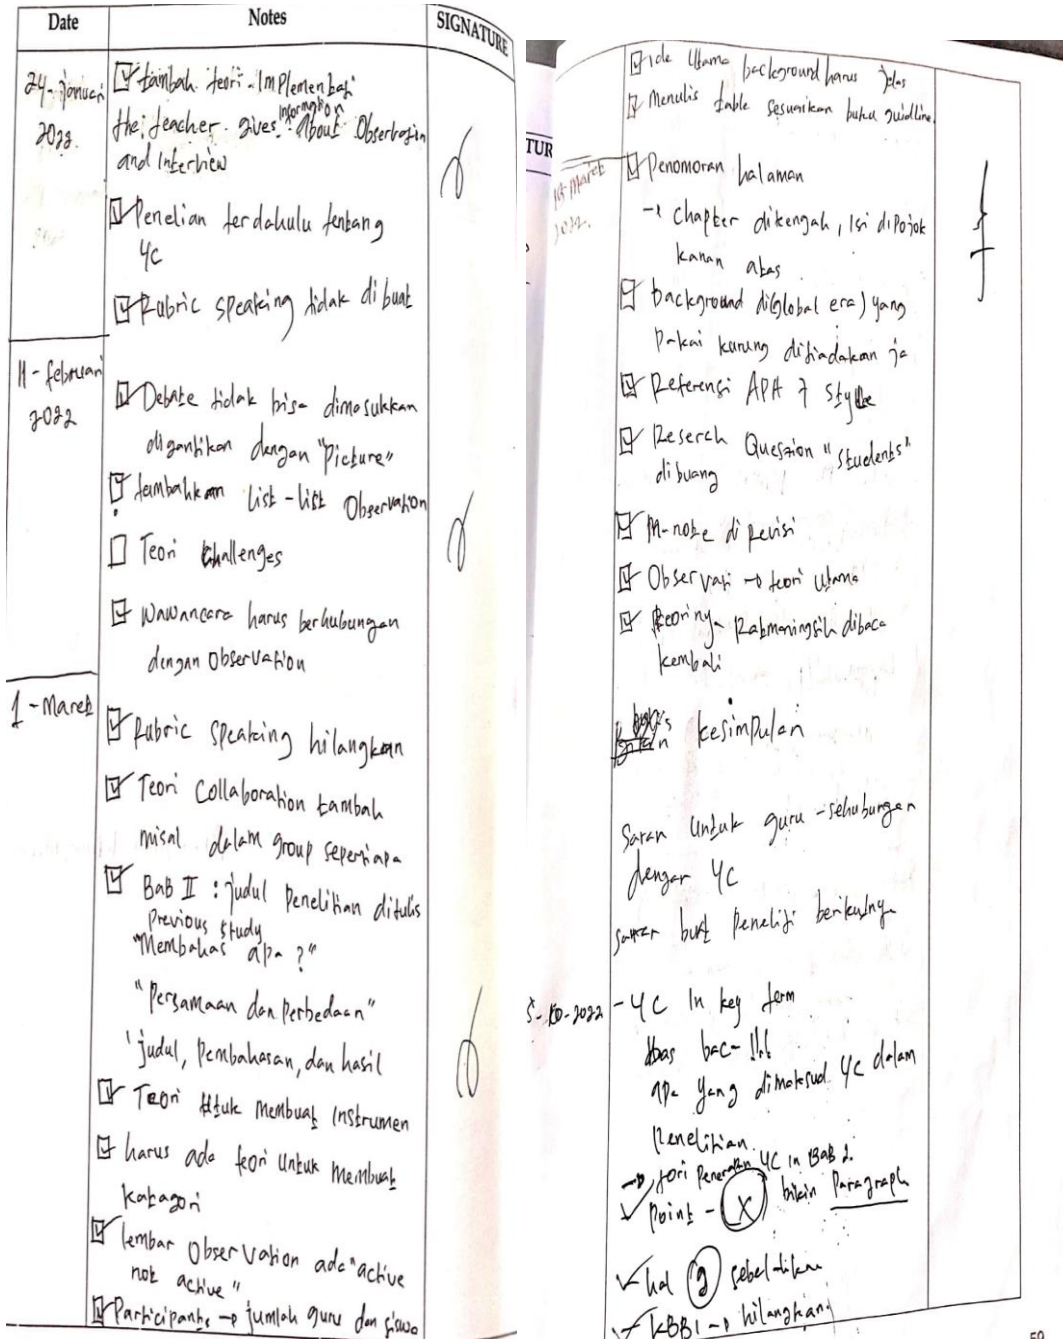 Date
Notes
SIGNATURE
24-Januari
2022.
tambah teori-Implementasi
the teacher gives information About Observation
and Interview
Penelian terdahulu tentang
4C
Rubric speaking tidak dibuat
11-februari
2022
Debate tidak bisa dimasukkan
digantikan dengan "Picture"
tambahkan list-list Observation
Teori Challenges
Wawancara harus berhubungan
dengan Observation
1-Maret
Rubric Speaking hilangkan
Teori Collaboration tambah
misal dalam group seperti apa
Bab II : judul Penelitian ditulis
Previous study
"Membahas apa ?"
"Persamaan dan Perbedaan"
judul, Pembahasan, dan hasil
Teori Membuat Instrumen
harus ada teori Untuk Membuat
Katagori
lembar Observation ada "active
not active"
Participants → jumlah guru dan siswa
TUR
ide Utama background harus jelas
Menulis table sesuaikan buku guidline.
Maret
2022.
Penomoran halaman
→ Chapter ditengah, Isi dipojok
kanan atas.
background di(global era) yang
Pakai kurung ditiadakan ja
Referensi APA 7 Style
Reserch Question "Students"
dibuang
M-note di Revisi
Observasi → teori Utama
teorinya Ratmaningsih dibaca
kembali
kesimpulan
Saran Untuk guru - sehubungan
dengan 4C
saran buat Peneliti berikutnya
5-10-2022
- 4C In key term
apa yang dimaksud 4C dalam
Penelitian.
→ Penerapan 4C in Bab 2.
Point - X bikin Paragraph
hal 9
KBBI → hilangkan